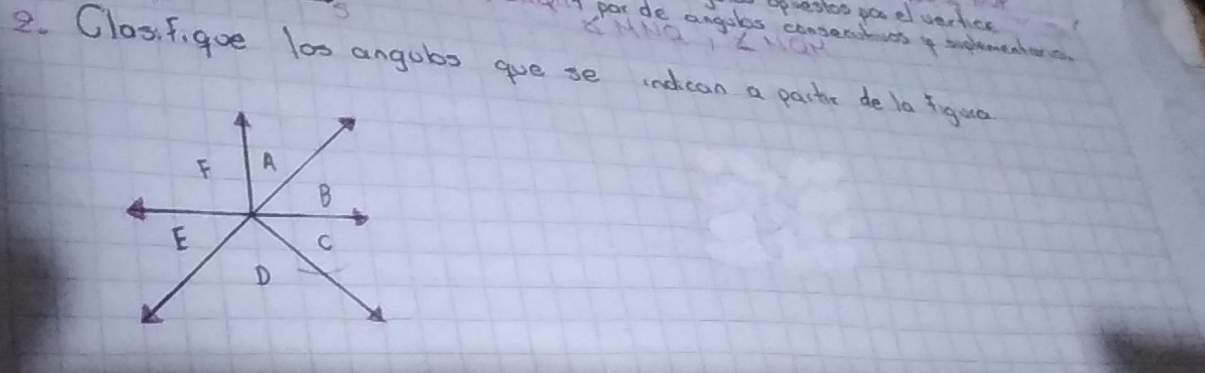 opuestos por el vertice
par de angulos consecutivos y suplementarios.
∠MNQ, ∠NQM
2. Clasifique los angulos que se indican a partir de la figura
A
F
B
E
C
D